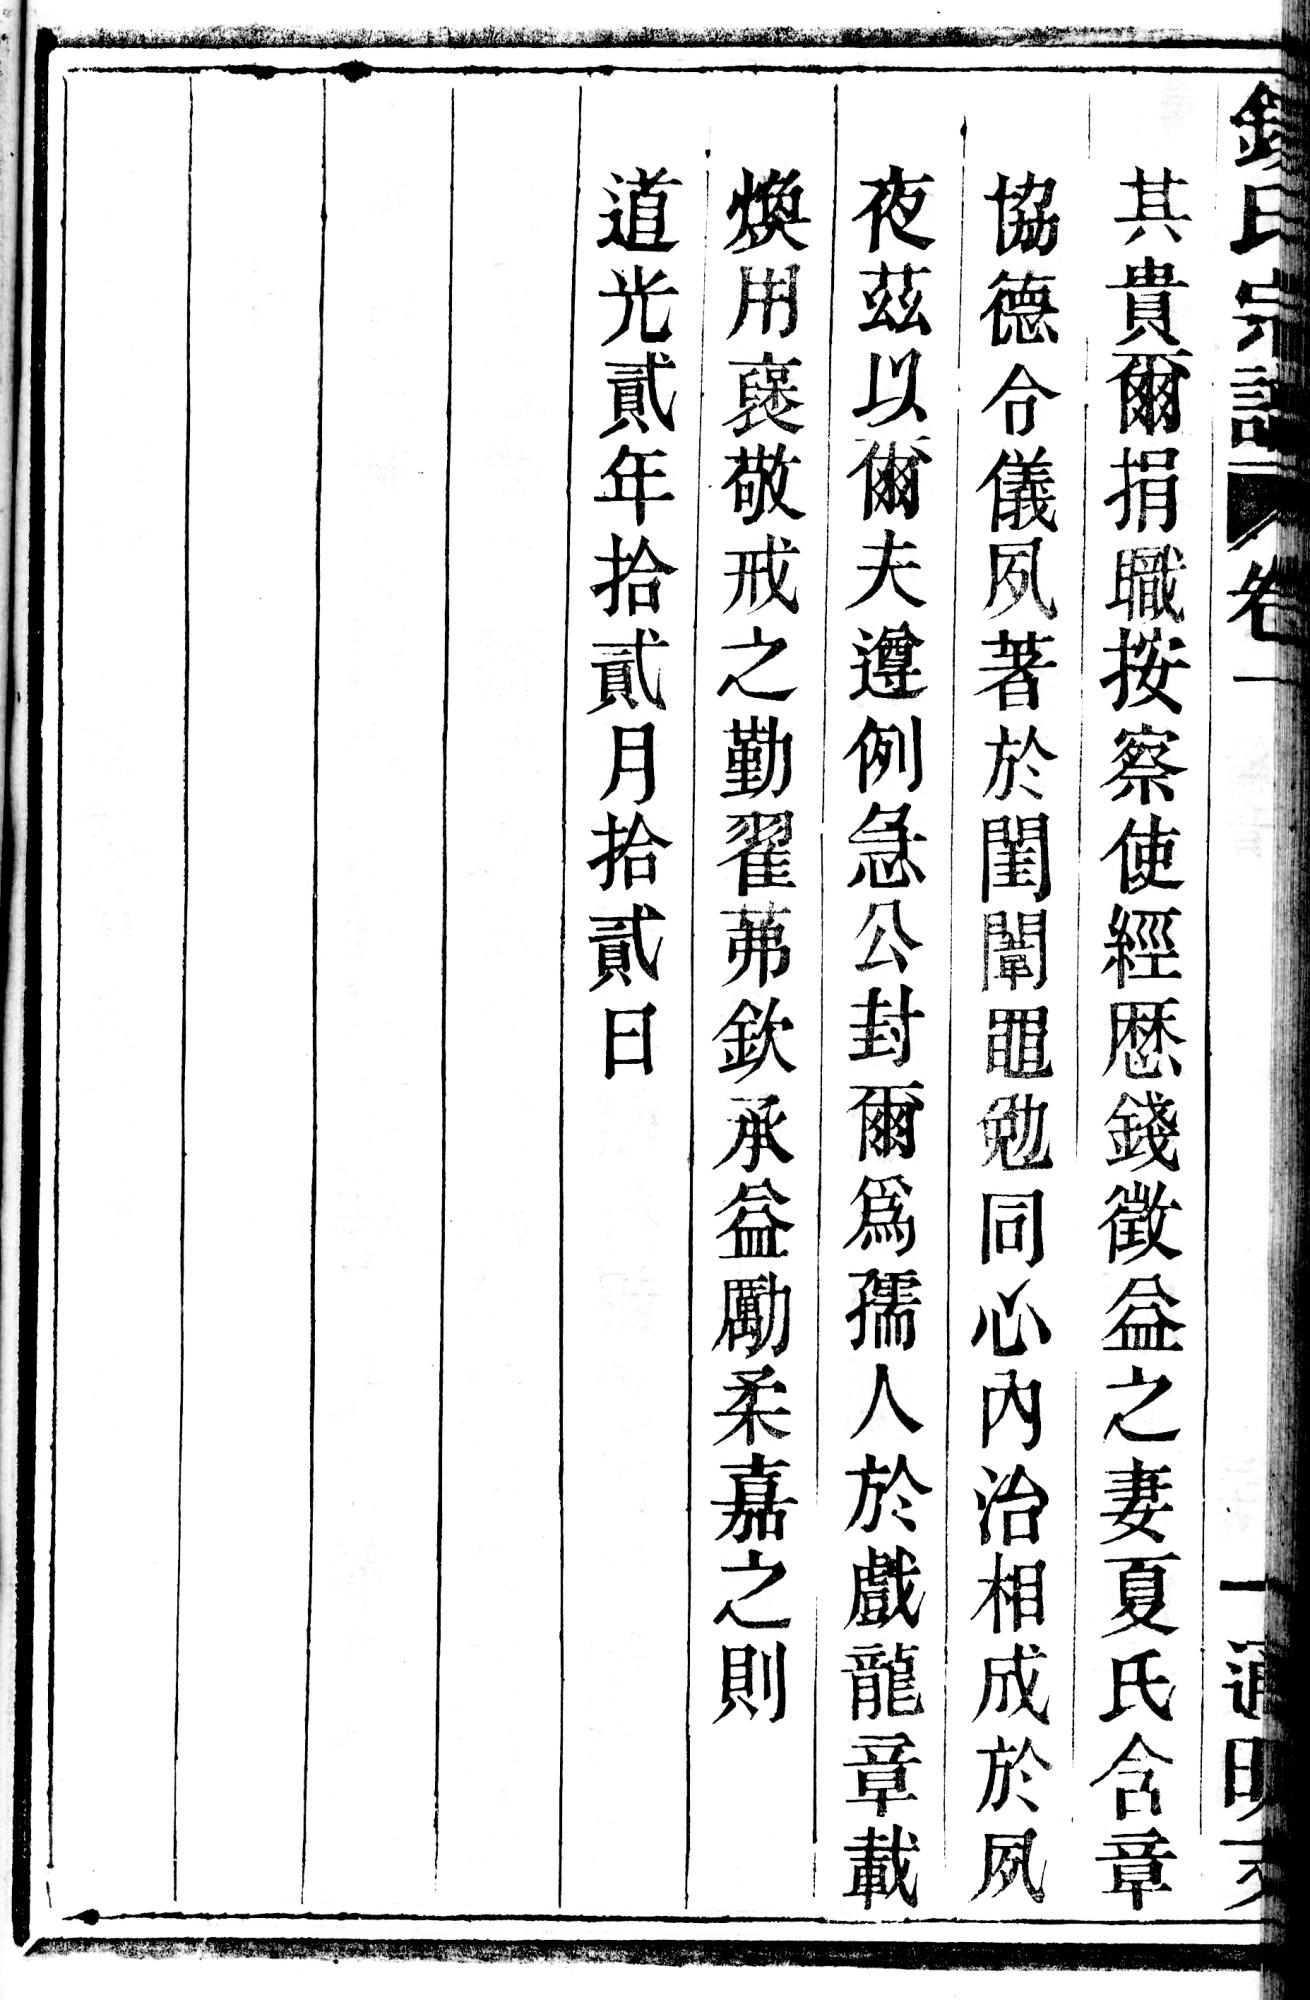 錢氏宗譜 卷一 一 通明
其貴爾捐職按察使經厯錢徵益之妻夏氏含章
協德令儀夙著於閨闈黽勉同心內治相成於夙
夜茲以爾夫遵例急公封爾爲孺人於戲龍章載
煥用褒敬戒之勤翟茀欽承益勵柔嘉之則
道光貳年拾貳月拾貳日